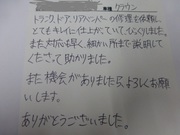 車種 クラウン
トランク、ドア、リアバンパーの修理を依頼し、
とてもキレイに仕上がっていてびっくりしました。
また対応も早く、細かい所まで説明して
くださって助かりました。
また機会がありましたら、よろしくお願
いします。
ありがとうございました。